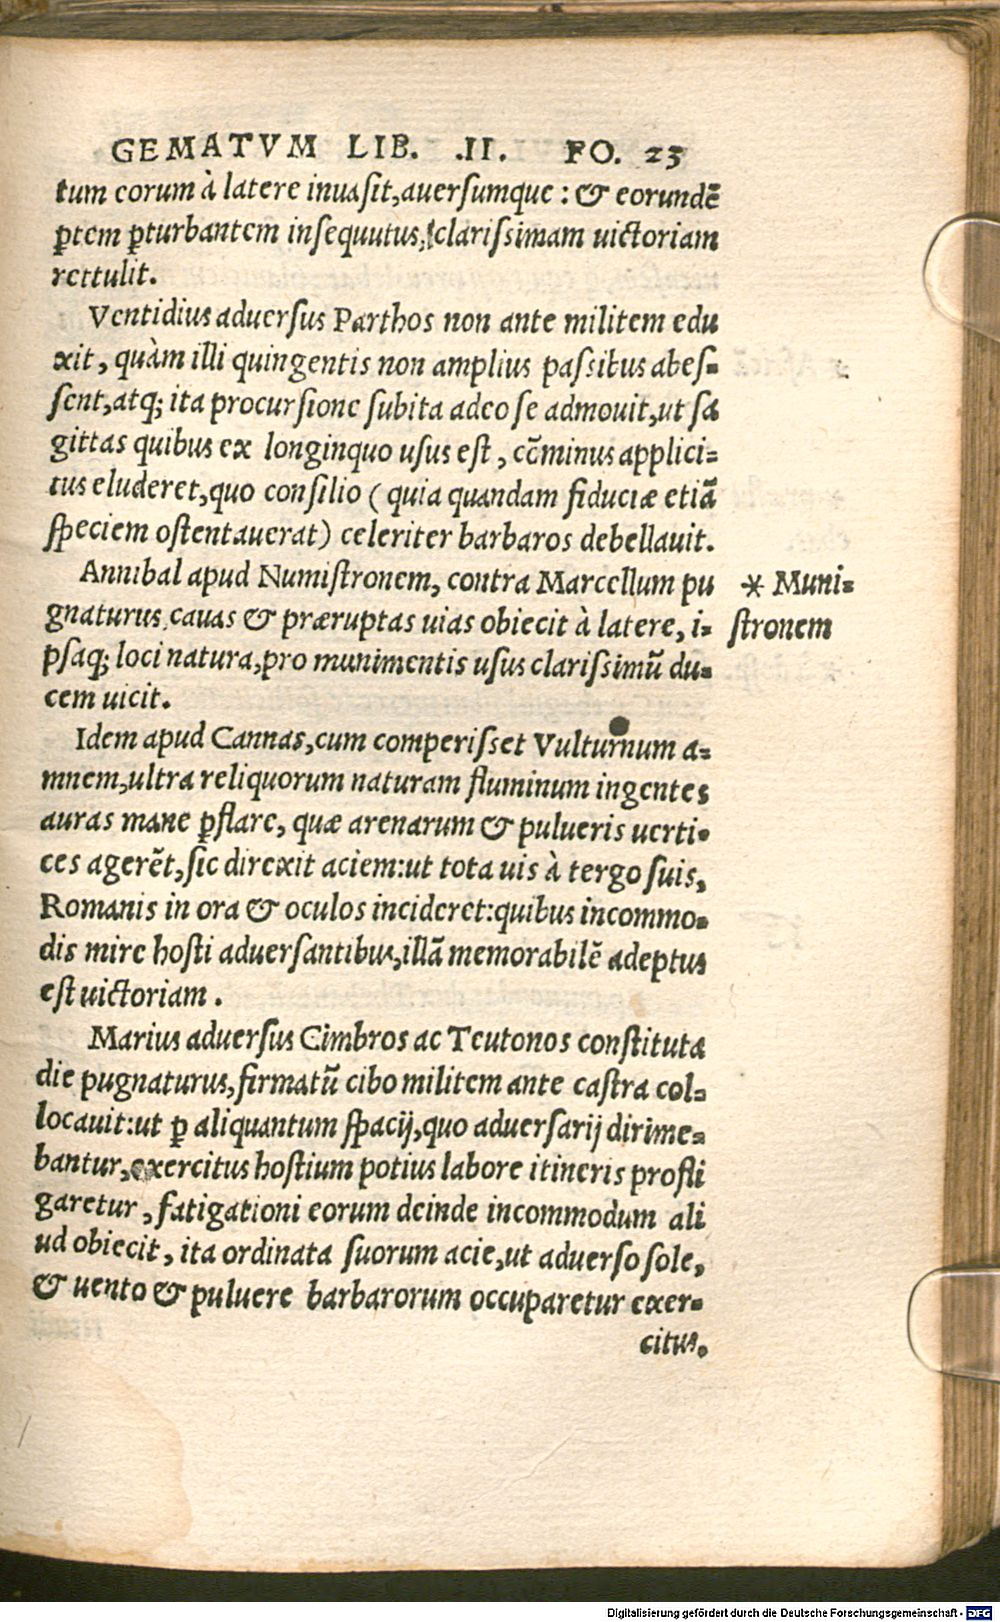 GEMATVM LIB. .II. FO. 23
tum eorum à latere inuasit, auersumque: & eorundē
ꝑtem ꝑturbantem insequutus, clarissimam uictoriam
rettulit.
Ventidius aduersus Parthos non ante militem edu
xit, quàm illi quingentis non amplius passibus abes=
sent, atq; ita procursione subita adeo se admouit, ut sa
gittas quibus ex longinquo usus est, cōminus applici=
tus eluderet, quo consilio (quia quandam fiduciæ etiā
speciem ostentauerat) celeriter barbaros debellauit.
Annibal apud Numistronem, contra Marcellum pu
* Muni=
gnaturus, cauas & præruptas uias obiecit à latere, i=
stronem
psaq; loci natura, pro munimentis usus clarissimū du=
cem uicit.
Idem apud Cannas, cum comperisset Vulturnum a=
mnem, ultra reliquorum naturam fluminum ingentes
auras mane ꝑflare, quæ arenarum & pulueris uerti=
ces agerēt, sic direxit aciem: ut tota uis à tergo suis,
Romanis in ora & oculos incideret: quibus incommo=
dis mire hosti aduersantibus, illā memorabilē adeptus
est uictoriam.
Marius aduersus Cimbros ac Teutonos constituta
die pugnaturus, firmatū cibo militem ante castra col=
locauit: ut ꝑ aliquantum spacij, quo aduersarij dirime=
bantur, exercitus hostium potius labore itineris profli
garetur, fatigationi eorum deinde incommodum ali
ud obiecit, ita ordinata suorum acie, ut aduerso sole,
& uento & puluere barbarorum occuparetur exer=
citus.
Digitalisierung gefördert durch die Deutsche Forschungsgemeinschaft - DFG